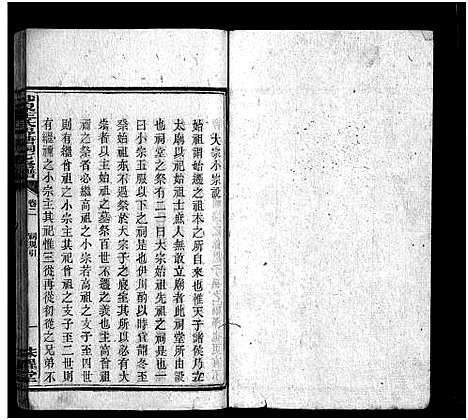 大宗小宗說
始祖謂始遷之祖本之所自來也惟天子諸侯乃立
太廟以祀始祖士庶人無敢立廟者此祠堂所由設
也祠堂之祭有二一曰大宗始祖先祖之祠是也一
曰小宗五服以下之祠是也伊川酌以時宜謂冬至
祭始祖亦不過祭於大宗子之寢室其所以必祭於
宗者以主始祖之墓祭百世不遷也其祀高祖之祖
則有繼高祖之小宗若高祖之支子至四世
則有繼曾祖之小宗主其祀曾祖之支子至三世則
有繼禰之小宗主其祀惟三從再從初從之兄弟不
卷二
祠規引
一